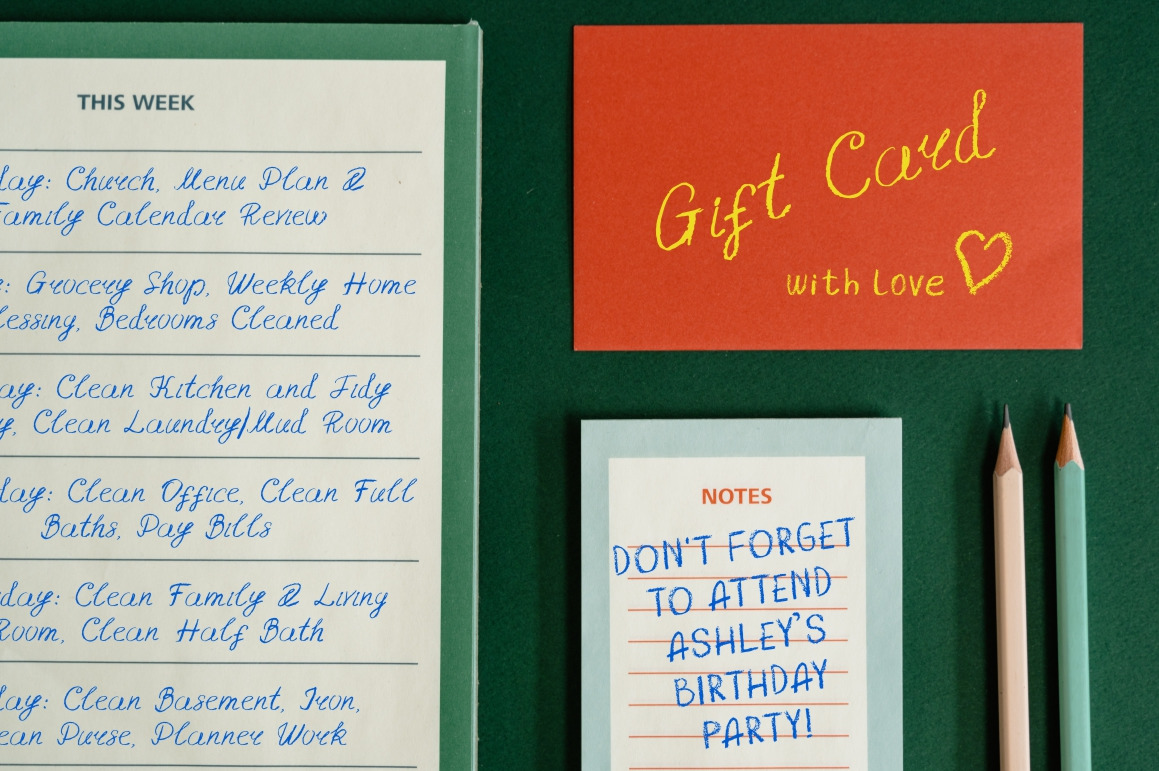 THIS WEEK
day: Church, Menu Plan &
Family Calendar Review
: Grocery Shop, Weekly Home
lessing, Bedrooms Cleaned
ay: Clean Kitchen and Tidy
y, Clean Laundry/Mud Room
day: Clean Office, Clean Full
Baths, Pay Bills
day: Clean Family & Living
Room, Clean Half Bath
day: Clean Basement, Iron,
ean Purse, Planner Work
Gift Card
with Love
NOTES
DON'T FORGET
TO ATTEND
ASHLEY'S
BIRTHDAY
PARTY!